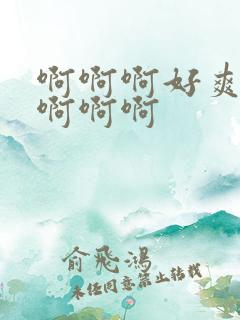 啊啊啊好爽
啊啊啊
俞飛鴻
未经同意禁止转载